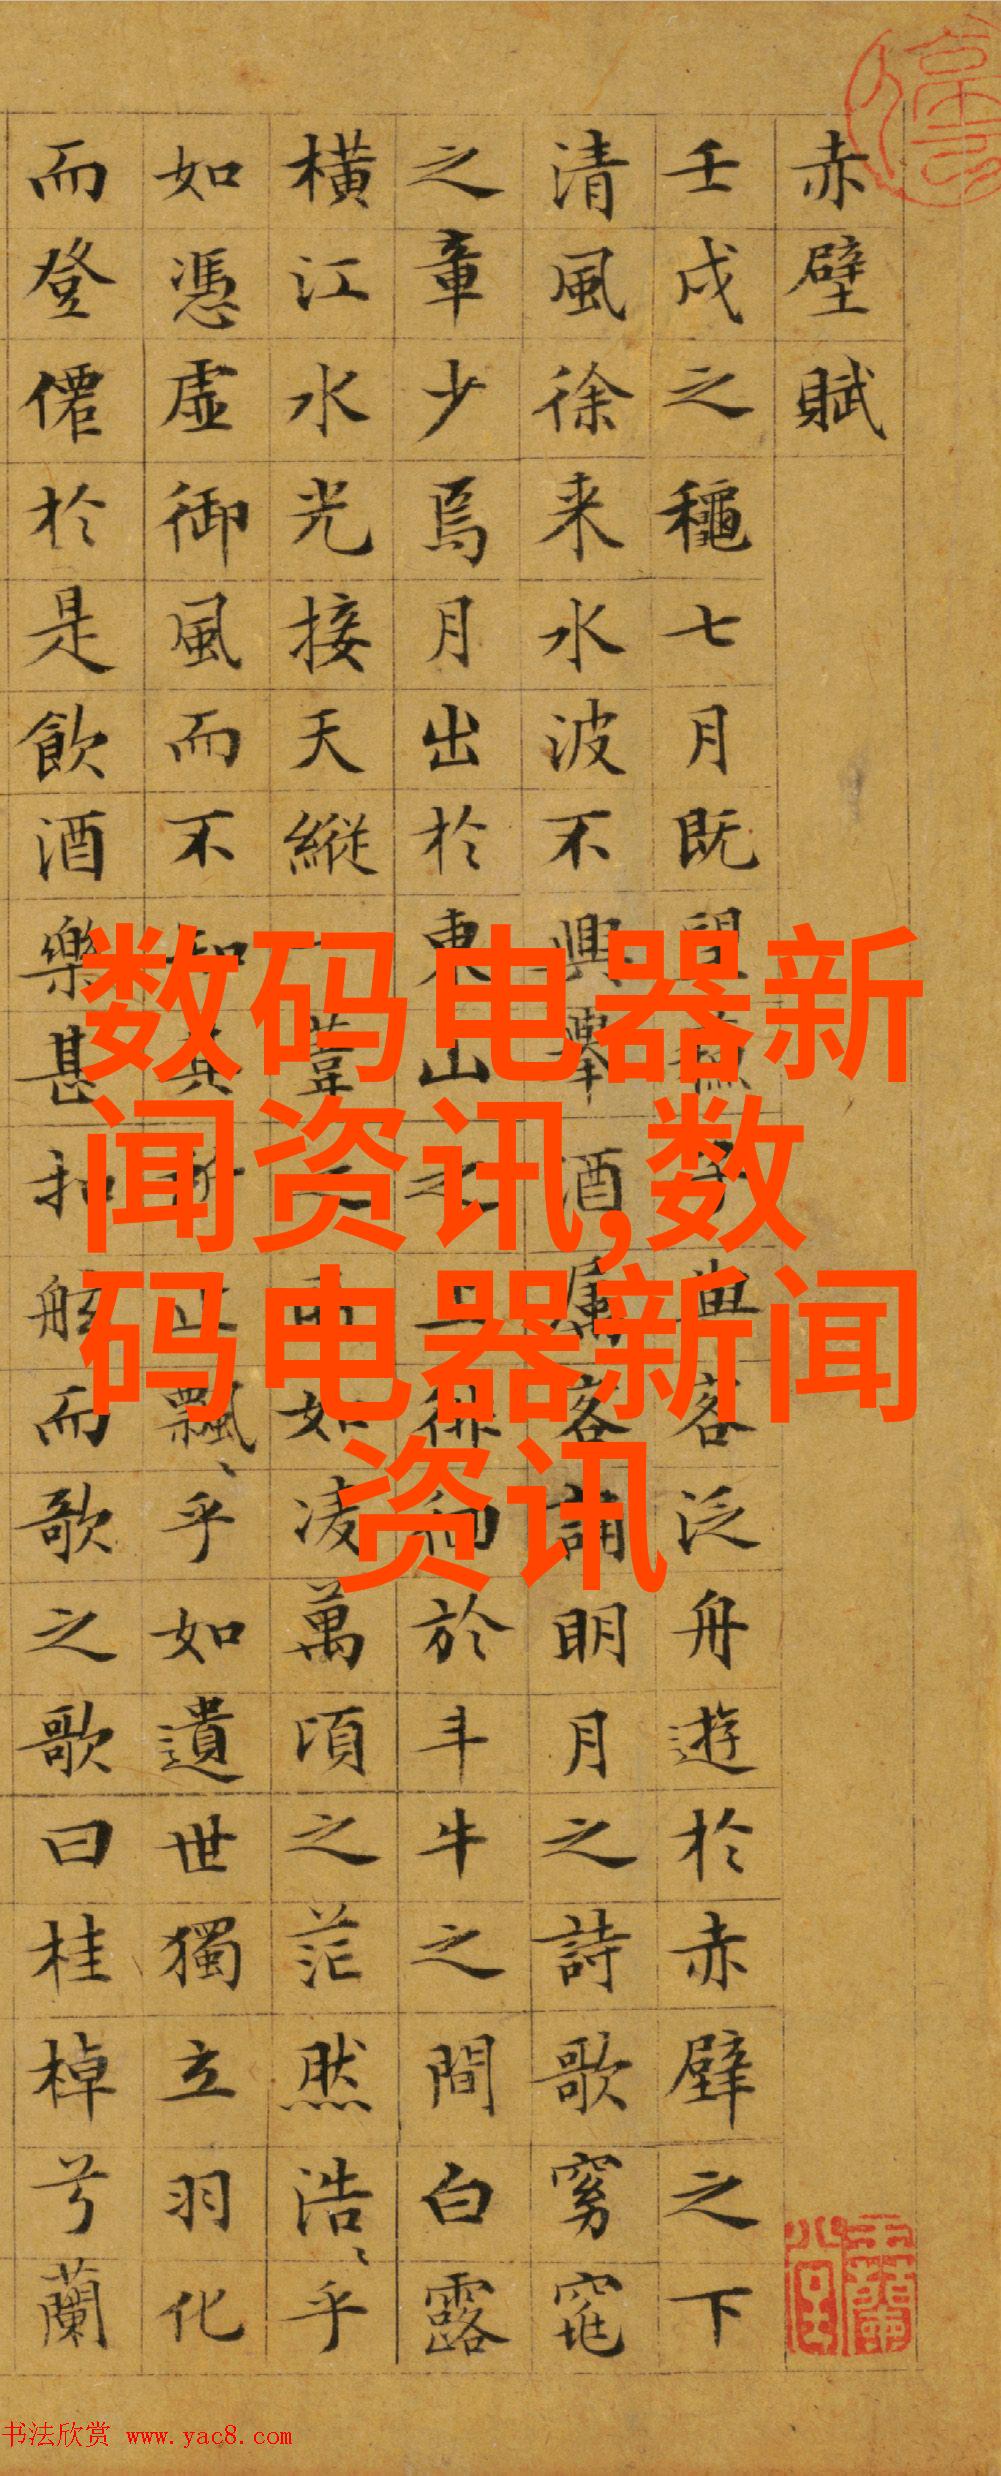 赤壁賦
壬戌之穐七月既望蘇子與客泛舟遊於赤壁之下
清風徐来水波不興舉酒屬客誦明月之詩歌窈窕
之章少焉月出於東山之上徘徊於斗牛之間白露
橫江水光接天縱一葦之所如凌萬頃之茫然浩〻乎
如憑虛御風而不知其所止飄〻乎如遺世獨立羽化
而登僊於是飲酒樂甚扣舷而歌之歌曰桂棹兮蘭
数码电器新
闻资讯,数
码电器新闻
资讯
书法欣赏 www.yac8.com